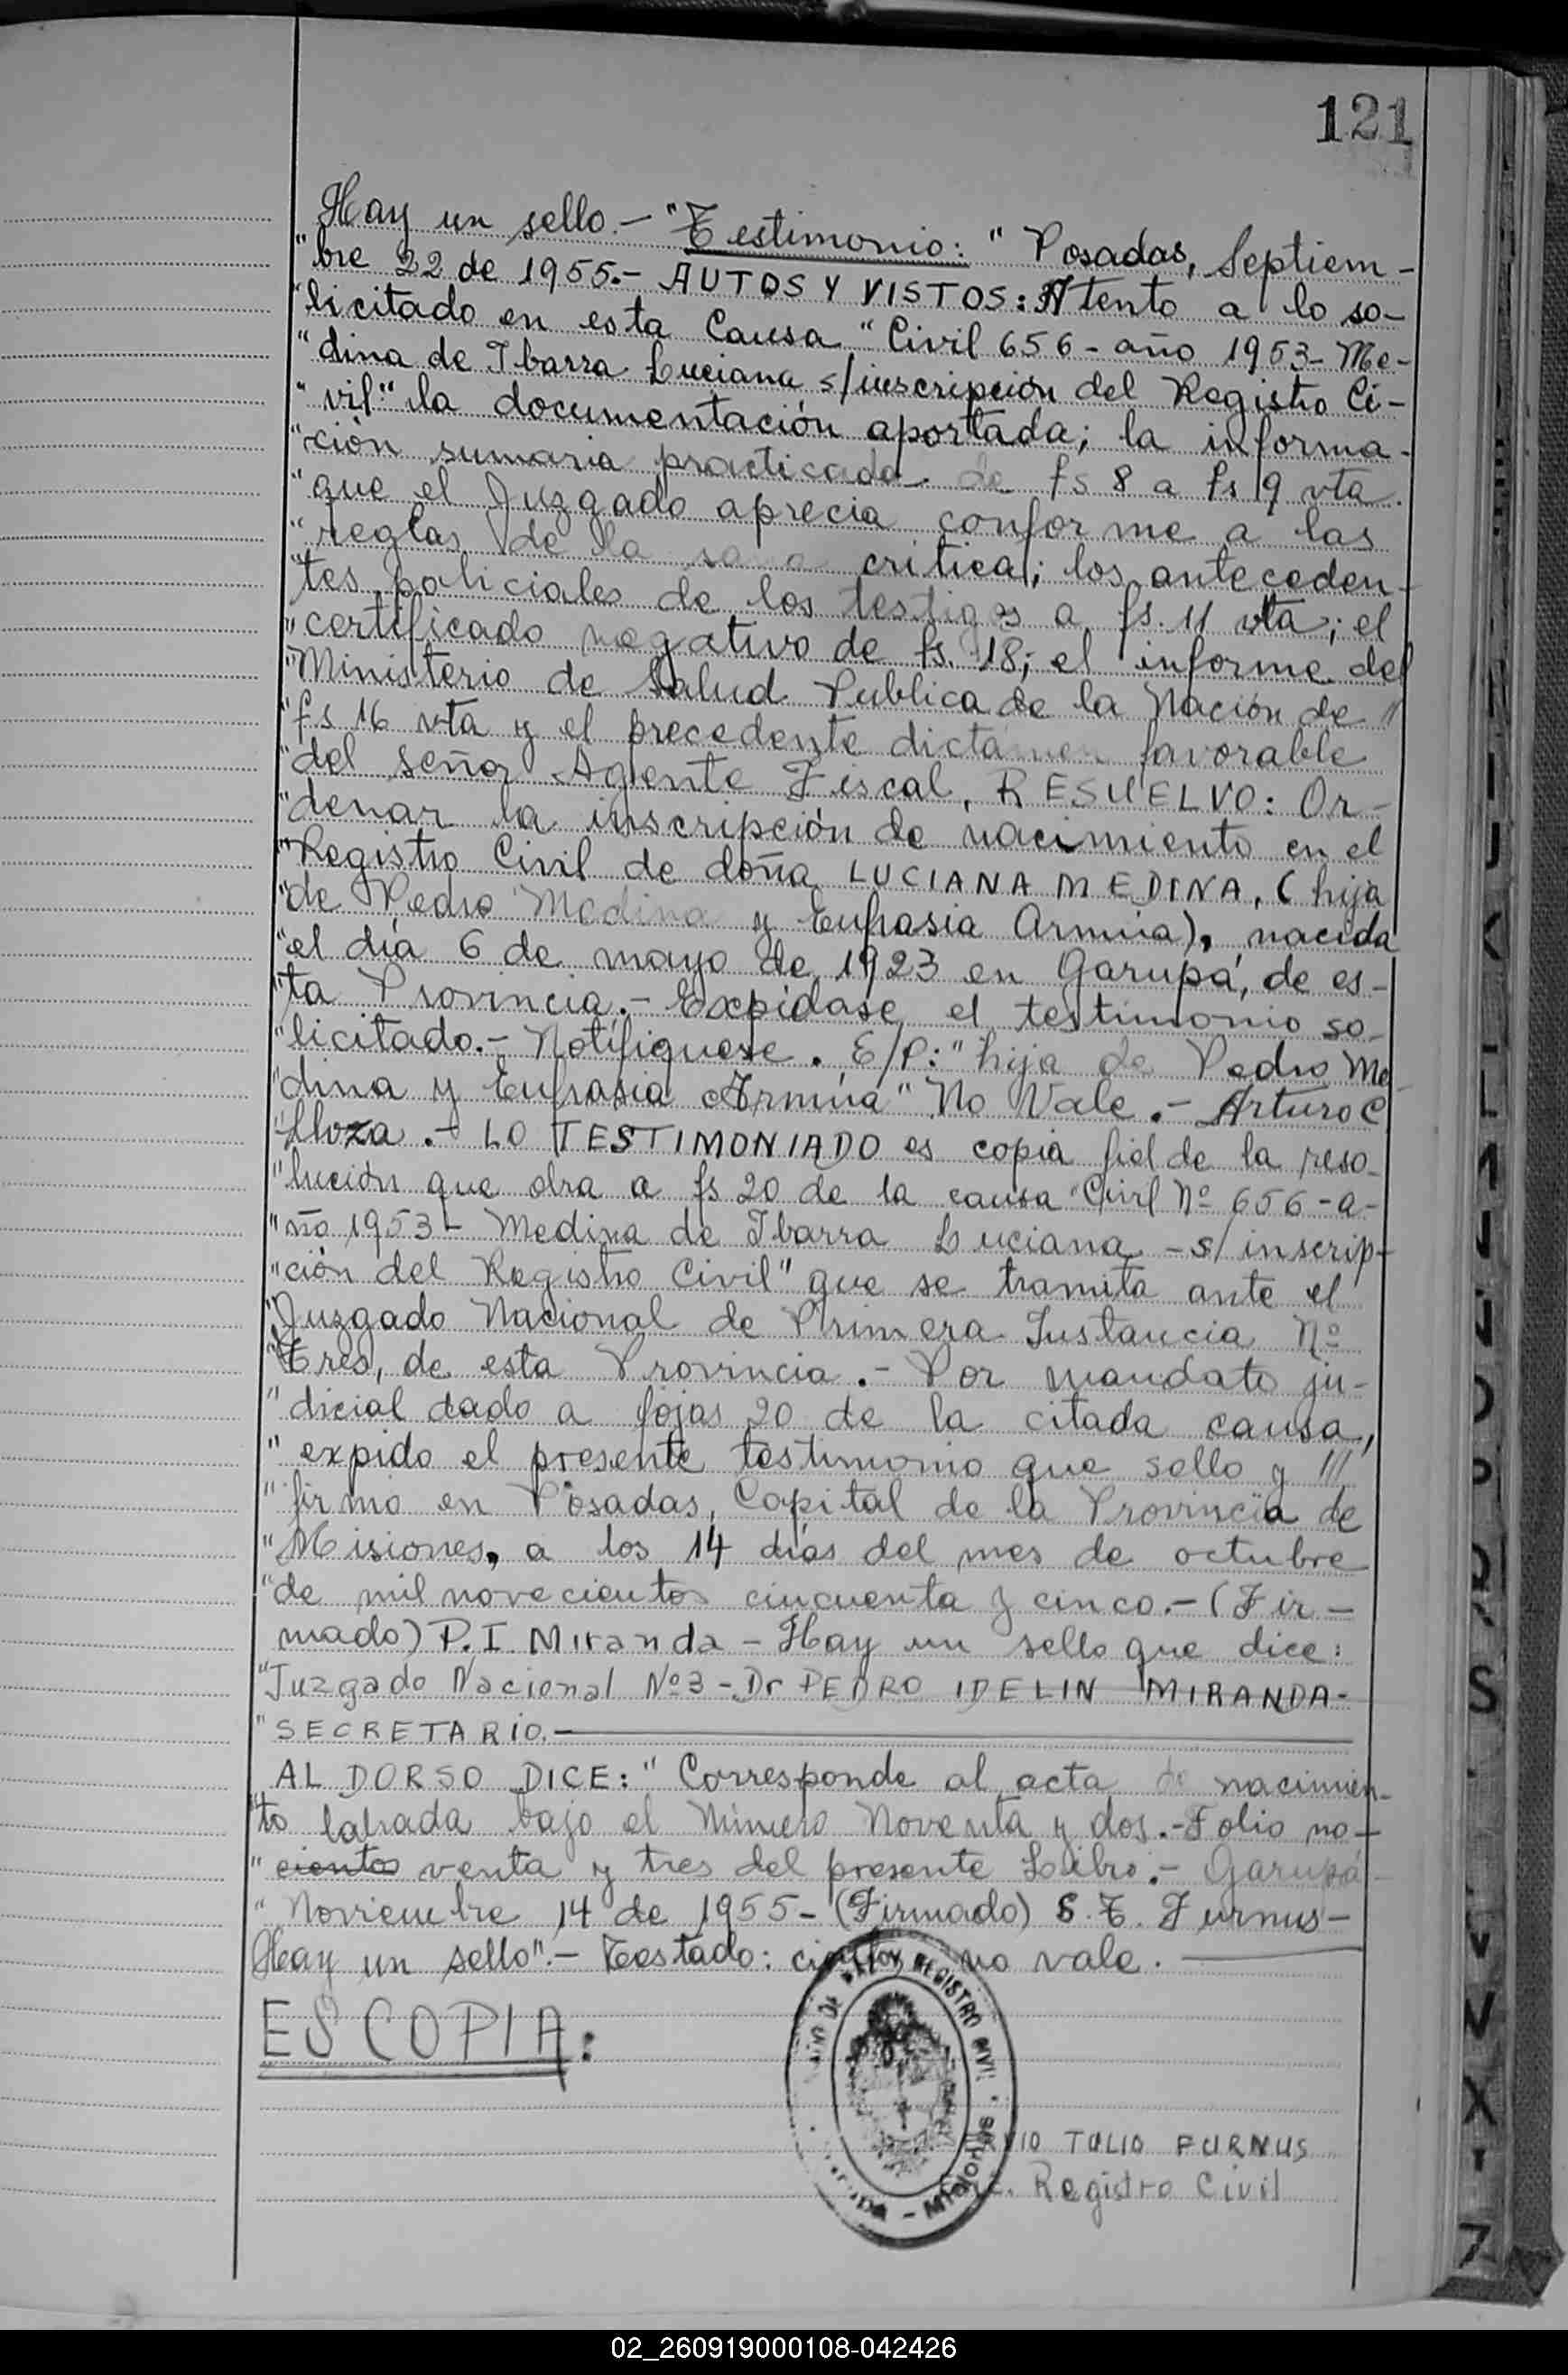 121
Hay un sello.- "Testimonio: "Posadas, Septiem-
"bre 22 de 1955.- AUTOS Y VISTOS: Atento a lo so-
"licitado en esta Causa "Civil 656 - año 1953 - Me-
"dina de Ibarra Luciana s/inscripción del Registro Ci-
"vil" la documentación aportada; la informa-
"ción sumaria practicada de fs 8 a fs 9 vta.
"que el Juzgado aprecia conforme a las
"reglas de la sana critica; los anteceden-
"tes policiales de los testigos a fs. 11 vta; el
"certificado negativo de fs. 18; el informe del
"Ministerio de Salud Publica de la Nación de //
"fs 16 vta y el precedente dictamen favorable
"del señor Agente Fiscal, RESUELVO: Or-
"denar la inscripción de nacimiento en el
"Registro Civil de doña LUCIANA MEDINA, (hija
"de Pedro Medina y Eufrasia Armúa), nacida
"el día 6 de mayo de 1923 en Garupá, de es-
"ta Provincia.- Expídase el testimonio so-
"licitado.- Notifíquese. E/P: "hija de Pedro Me-
"dina y Eufrasia Armúa" No Vale.- Arturo C
.- LO TESTIMONIADO es copia fiel de la reso-
"lución que obra a fs 20 de la causa "Civil Nº 656 - a-
"ño 1953 - Medina de Ibarra Luciana - s/ inscrip-
"ción del Registro Civil" que se tramita ante el
"Juzgado Nacional de Primera Instancia Nº
"Tres, de esta Provincia.- Por mandato ju-
"dicial dado a fojas 20 de la citada causa,
"expido el presente testimonio que sello y ///
"firmo en Posadas, Capital de la Provincia de
"Misiones, a los 14 días del mes de octubre
"de mil novecientos cincuenta y cinco.- (Fir-
mado) P. I. Miranda - Hay un sello que dice:
"Juzgado Nacional Nº 3 - Dr PEDRO IDELIN MIRANDA-
"SECRETARIO.-
AL DORSO DICE: "Corresponde al acta de nacimien-
"to labrada bajo el Número Noventa y dos.- Folio no-
"cientos venta y tres del presente Libro.- Garupá-
"Noviembre 14 de 1955 - (Firmado) S. T. Furnus-
Hay un sello".- Testado: cientos no vale.
ES COPIA:
REGISTRO CIVIL
MISIONES
TULIO FURNUS
Registro Civil
I J K L M N O P Q R S V X
02_260919000108-042426